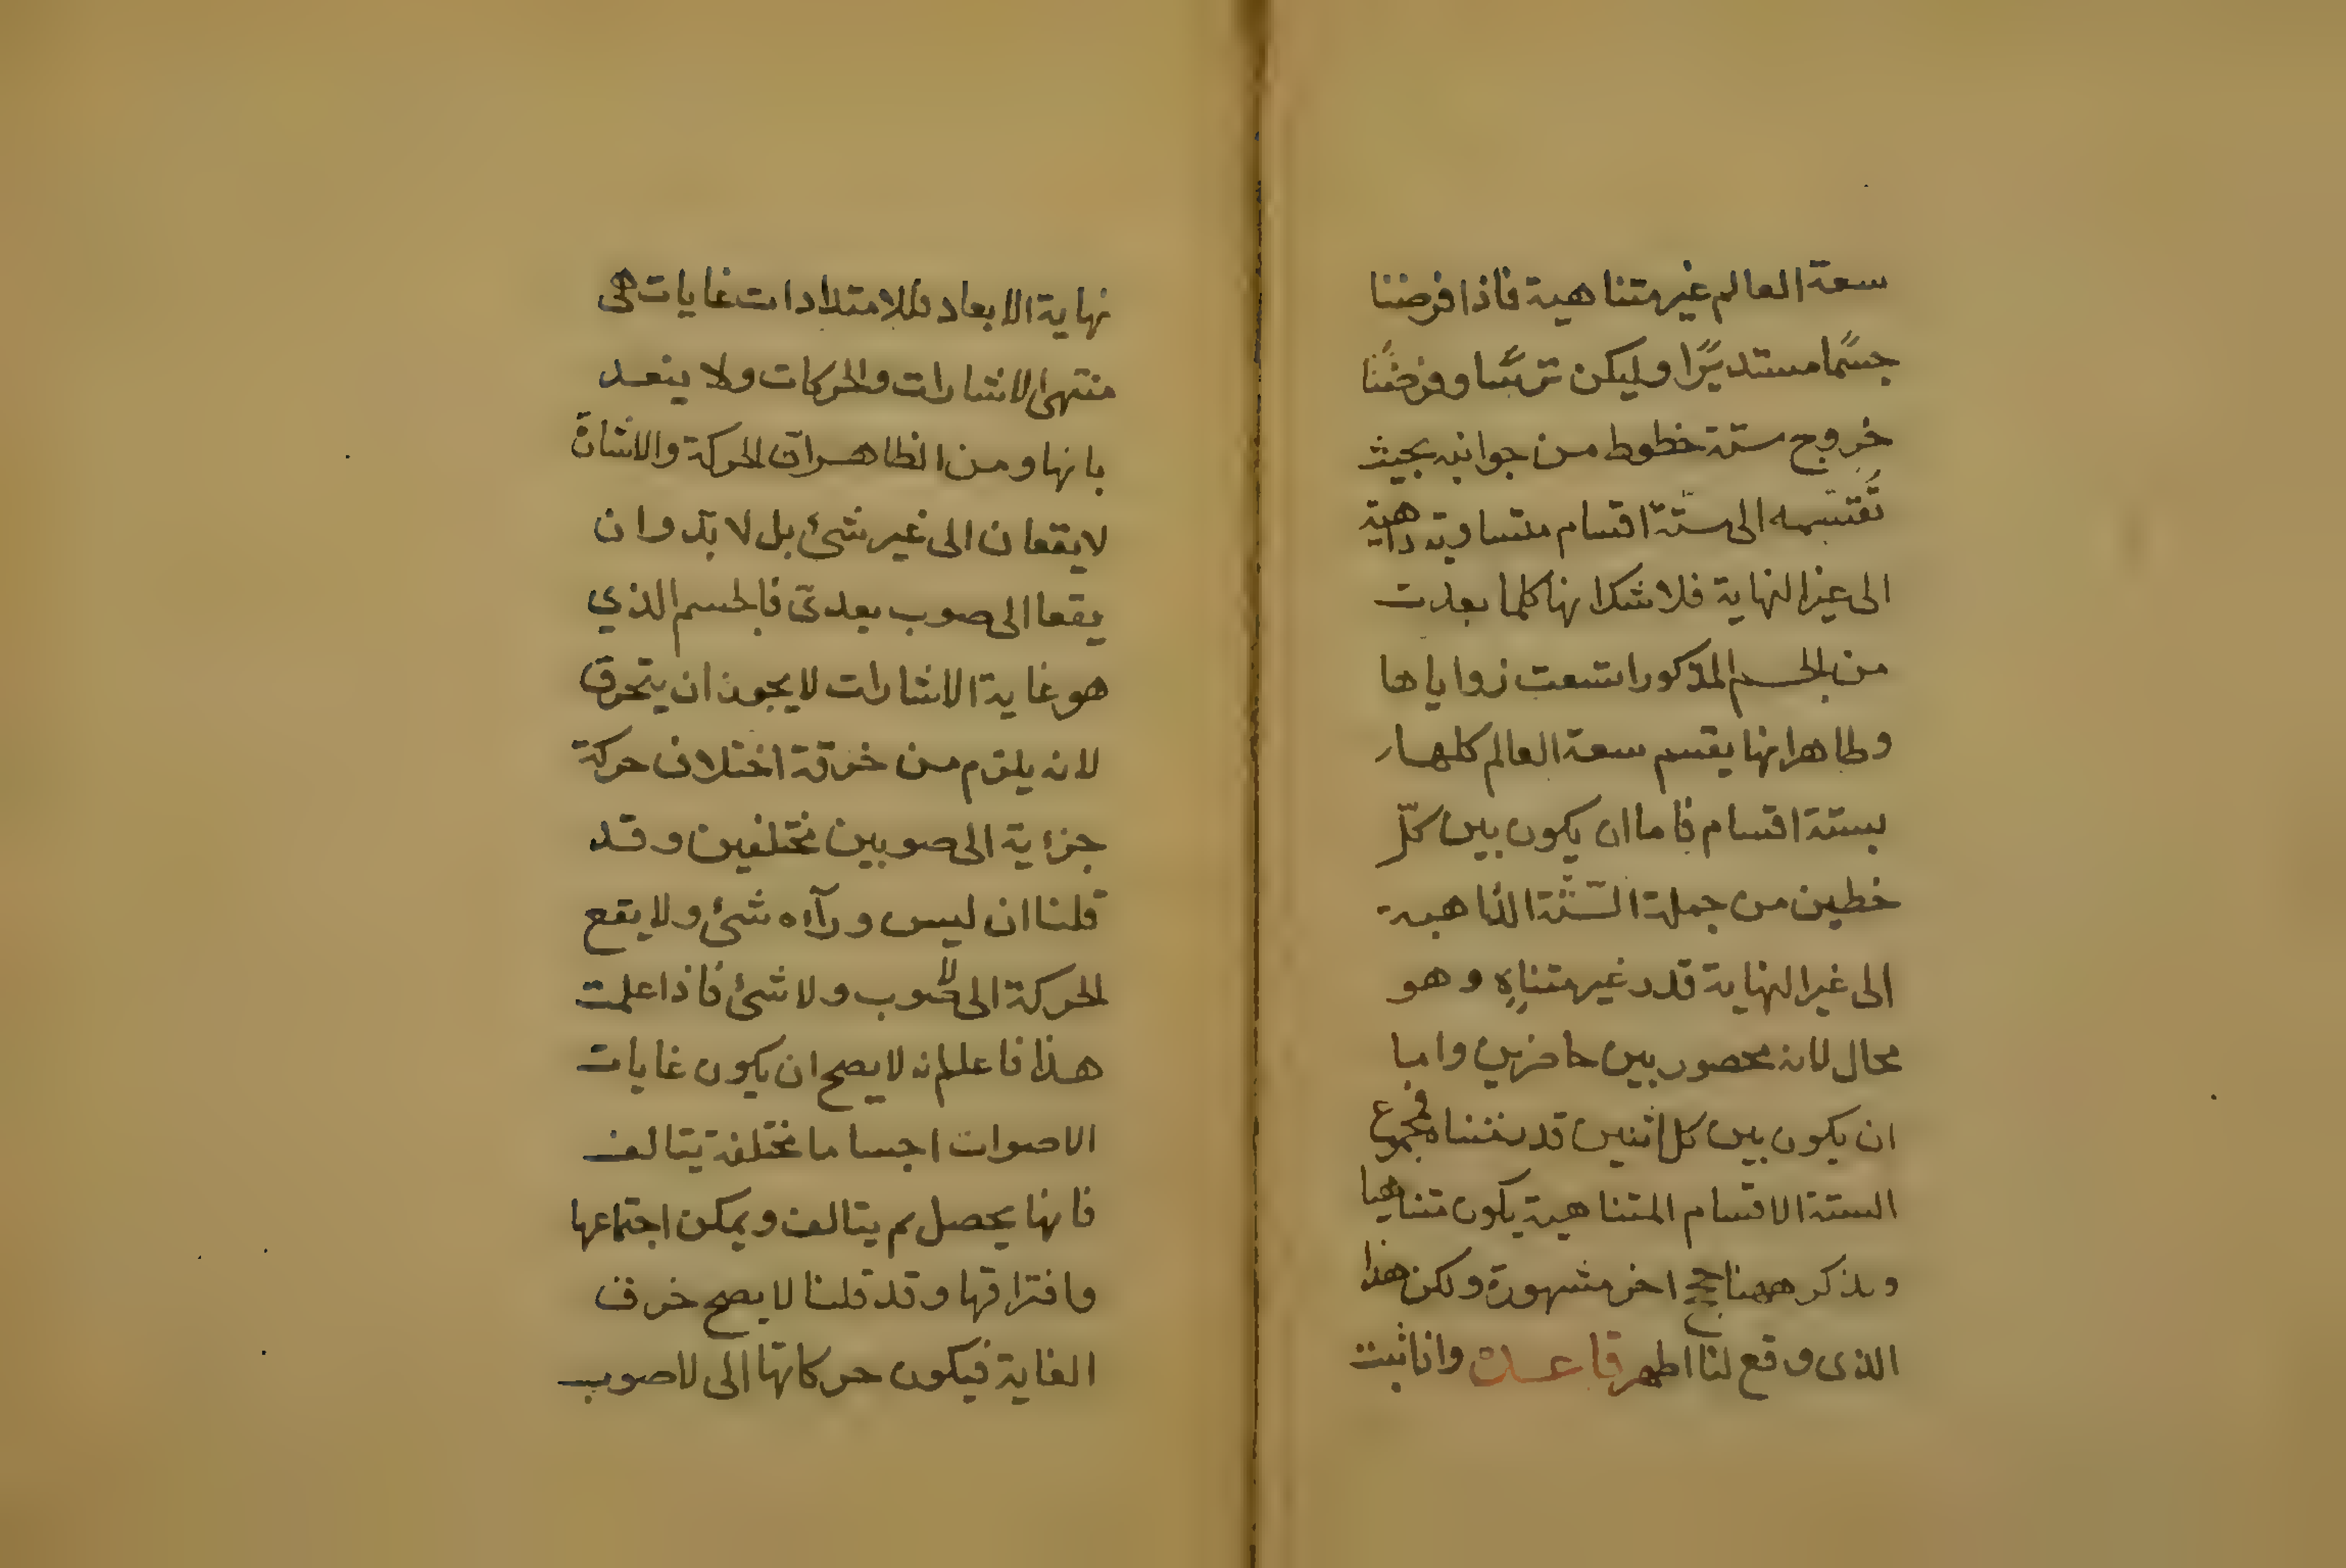 سعة العالم غير متناهية فاذا فرضنا
جسمًا مستديرًا وليكن ترسًا وفرضنا
خروج ستة خطوط من جوانبه بحيث
تقتسمه الى ستّة اقسام متساوية ذاهبة
الى غير النهاية فلا شك انها كلما بعدت
من الجسم المذكور اتسعت زواياها
وظاهر انها يقسم سعة العالم كلها
بستة اقسام فاما ان يكون بين كلّ
خطين من جملة الستّة الذاهبة
الى غير النهاية قدر غير متناهٍ وهو
محال لانه محصور بين حاضرين واما
ان يكون بين كل اثنين قدر متناه فمجموع
الستة الاقسام المتناهية يكون متناهيا
ويذكر ههنا حجج اخر مشهورة ولكن هذا
الذى وقع لنا اظهر قاعدة واذا ثبت
نهاية الابعاد فللامتدادات غايات هى
منتهى الاشارات والحركات ولا ينعد
بانها ومن الظاهر ان الحركة والاشارة
لا يقعان الى غير شئ بل لا بدّ وان
يقعا الى صوب بعدىّ فالجسم الذي
هو غاية الاشارات لا يجوز ان يتخرق
لانه يلزم من خرقة اختلاف حركة
جزاية الى صوبين مختلفين وقد
قلنا ان ليس ورآءه شئ ولا يقع
الحركة الى لا صوب ولا شئ فاذا علمت
هذا فاعلم انه لا يصح ان يكون غايات
الاصوات اجساما مختلفة يتالف
فانها يحصل ثم يتالف ويمكن اجتماعها
وافتراقها وقد قلنا لا يصح خرق
الغاية فيكون حركاتها الى لا صوب